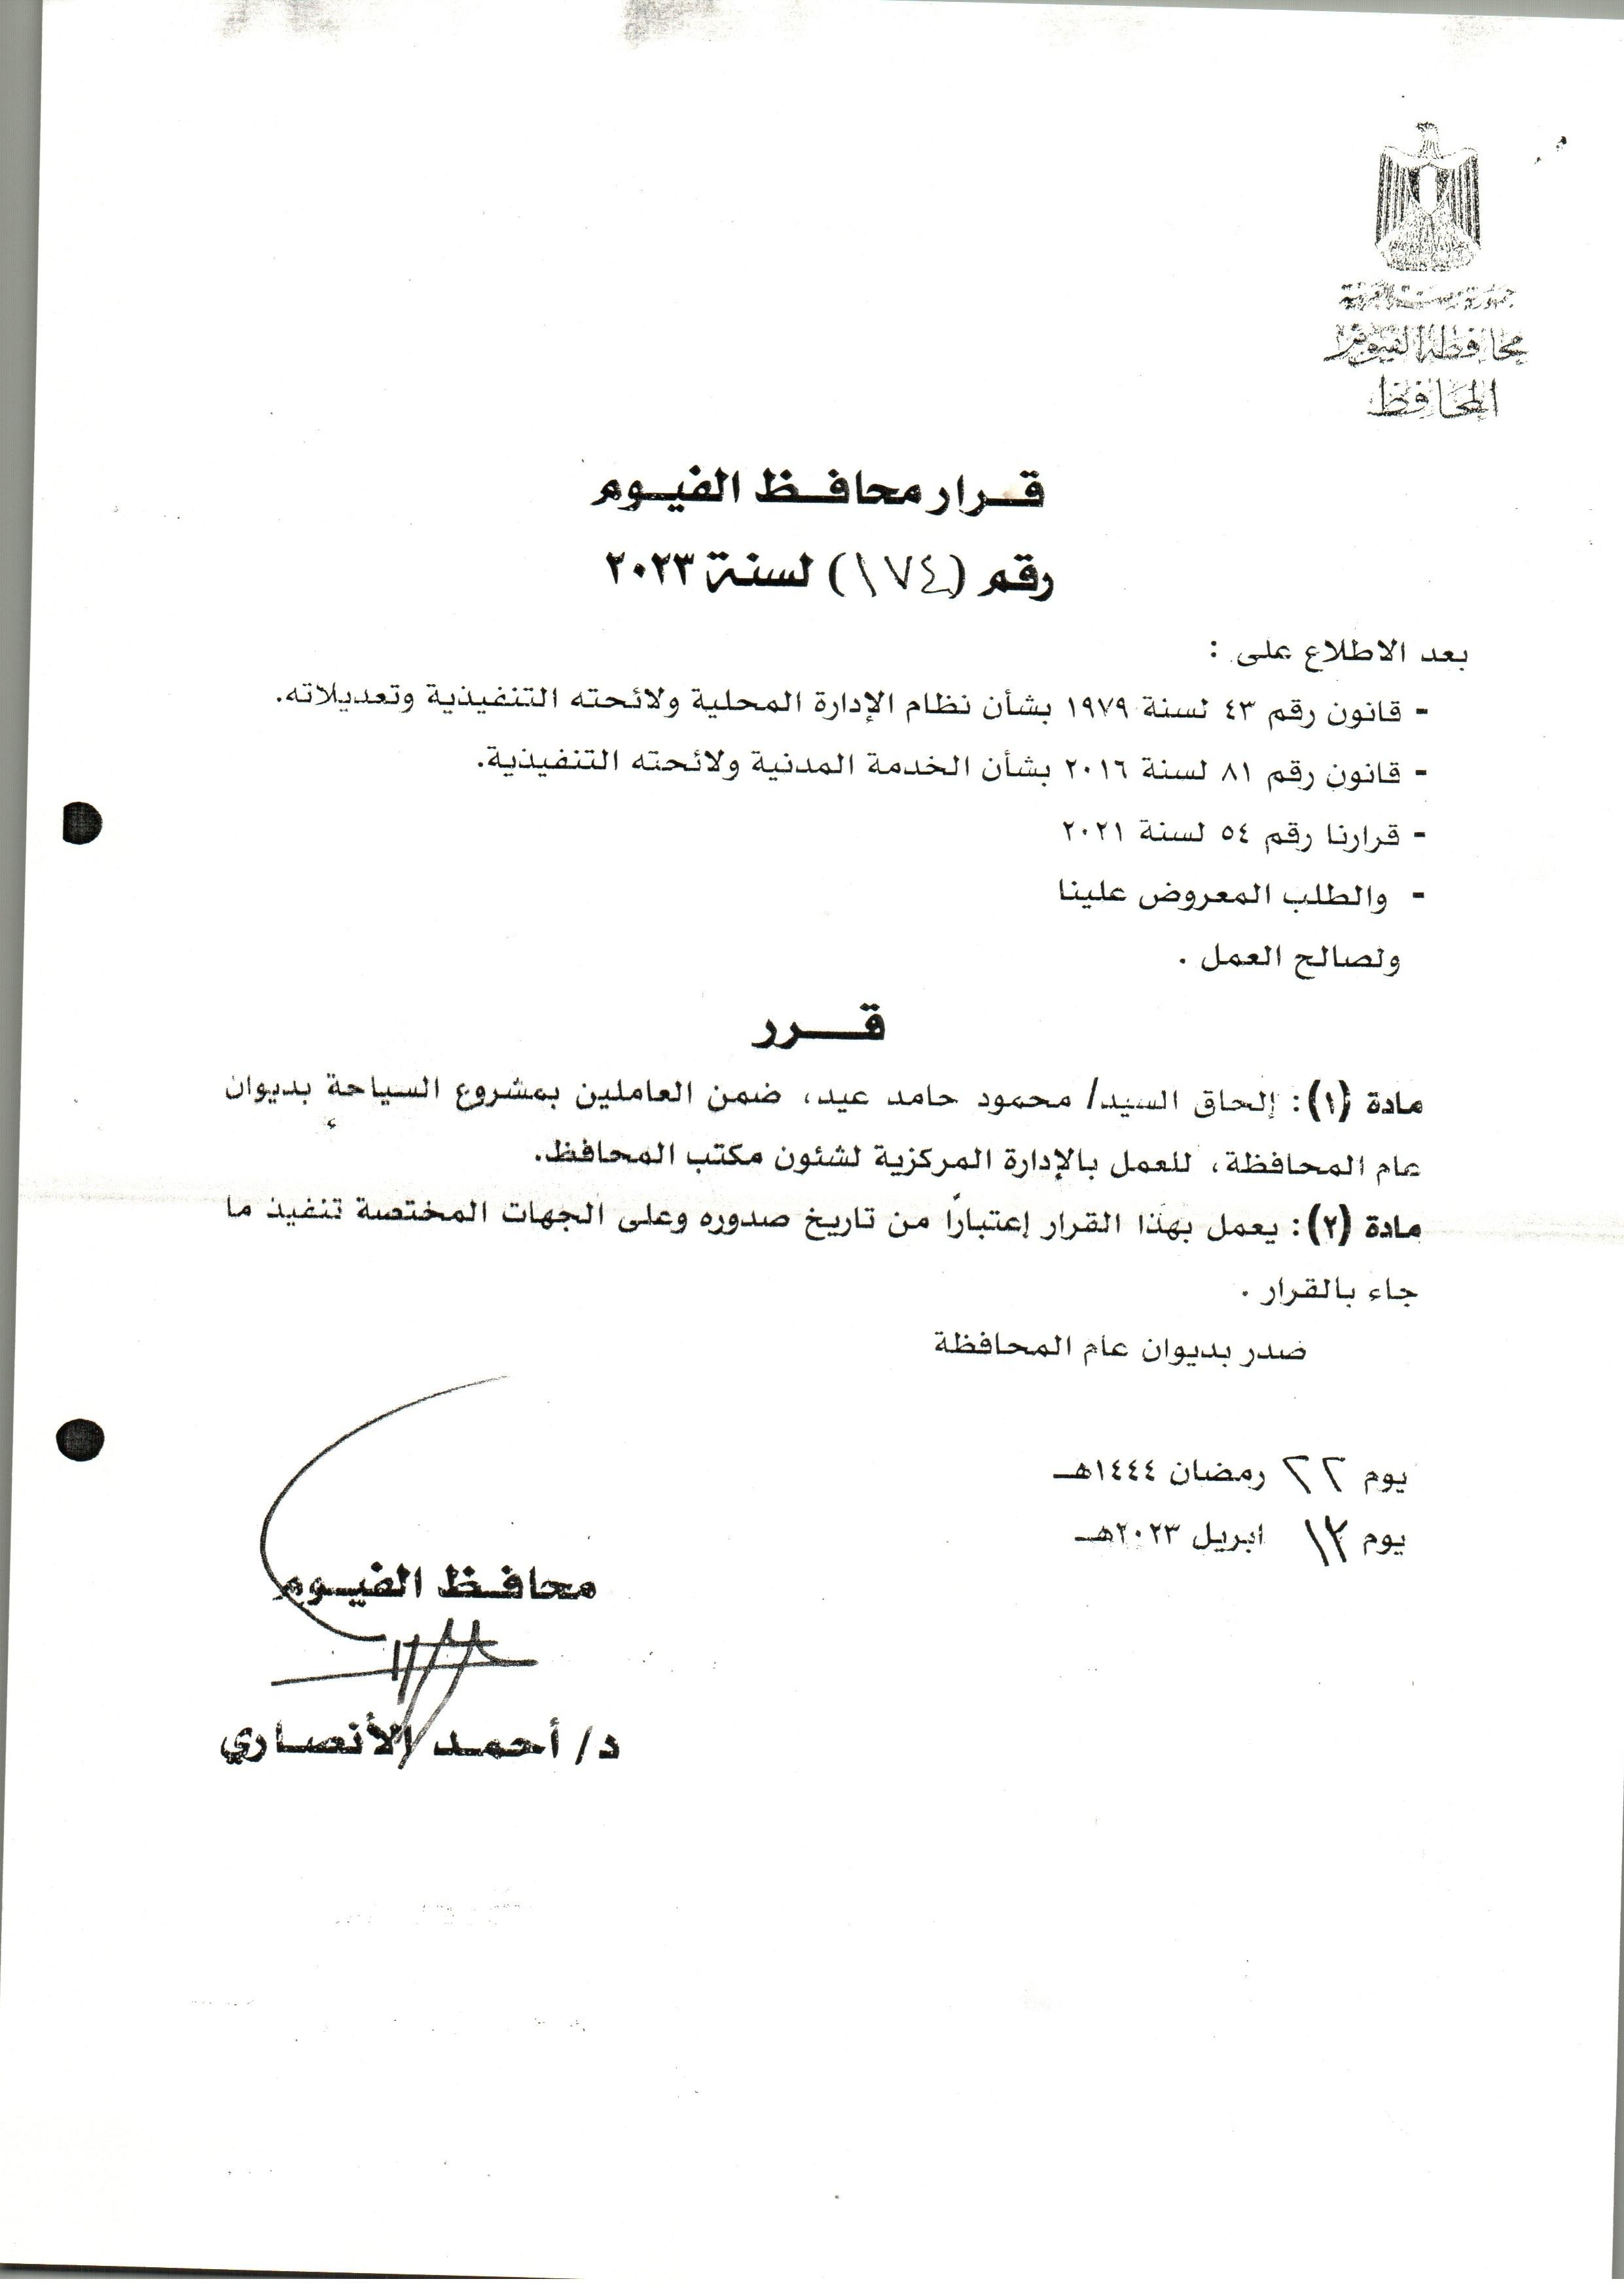 جمهورية مصر العربية
محافظة الفيوم
المحافظ
قرار محافظ الفيوم
رقم (١٧٤) لسنة ٢٠٢٣
بعد الاطلاع على :
- قانون رقم ٤٣ لسنة ١٩٧٩ بشأن نظام الإدارة المحلية ولائحته التنفيذية وتعديلاته.
- قانون رقم ٨١ لسنة ٢٠١٦ بشأن الخدمة المدنية ولائحته التنفيذية.
- قرارنا رقم ٥٤ لسنة ٢٠٢١
- والطلب المعروض علينا
ولصالح العمل .
قرر
مادة (١): إلحاق السيد/ محمود حامد عيد، ضمن العاملين بمشروع السياحة بديوان
عام المحافظة، للعمل بالإدارة المركزية لشئون مكتب المحافظ.
مادة (٢): يعمل بهذا القرار إعتباراً من تاريخ صدوره وعلى الجهات المختصة تنفيذ ما
جاء بالقرار .
صدر بديوان عام المحافظة
يوم ٢٢ رمضان ١٤٤٤هـ
يوم ١٣ ابريل ٢٠٢٣هـ
محافظ الفيوم
د/ أحمد الأنصاري